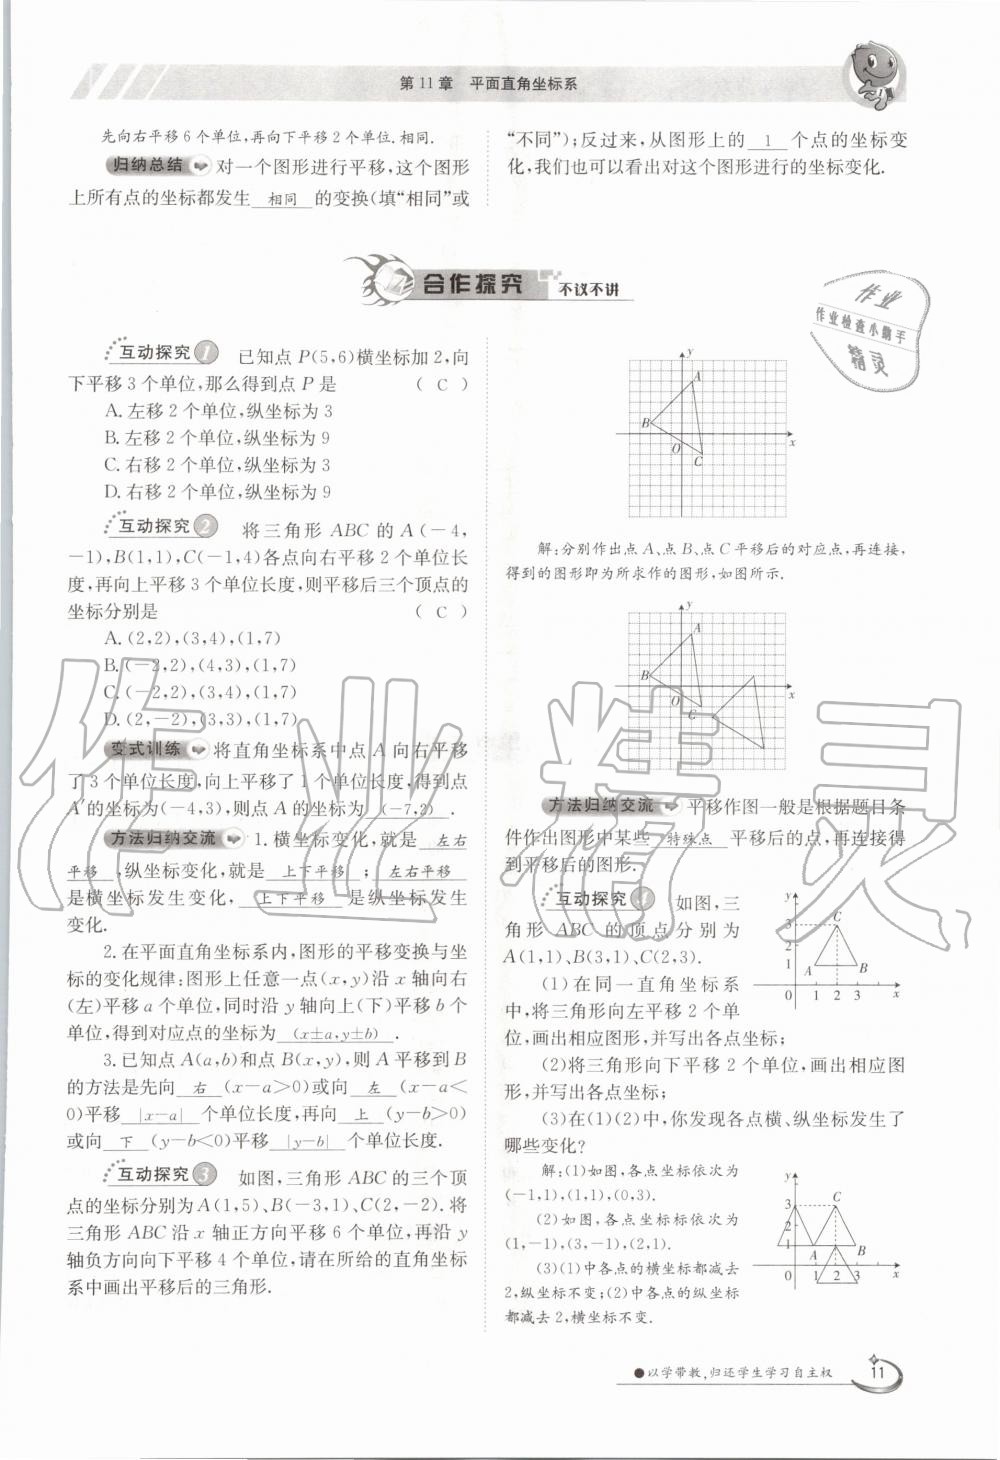 第11章 平面直角坐标系
先向右平移6个单位,再向下平移2个单位.相同.
归纳总结 对一个图形进行平移,这个图形
上所有点的坐标都发生 相同 的变换(填“相同”或
“不同”);反过来,从图形上的 1 个点的坐标变
化,我们也可以看出对这个图形进行的坐标变化.
合作探究 不议不讲
互动探究1 已知点P(5,6)横坐标加2,向
下平移3个单位,那么得到点P是 ( C )
A.左移2个单位,纵坐标为3
B.左移2个单位,纵坐标为9
C.右移2个单位,纵坐标为3
D.右移2个单位,纵坐标为9
互动探究2 将三角形ABC的A(-4,
-1),B(1,1),C(-1,4)各点向右平移2个单位长
度,再向上平移3个单位长度,则平移后三个顶点的
坐标分别是 ( C )
A.(2,2),(3,4),(1,7)
B.(-2,2),(4,3),(1,7)
C.(-2,2),(3,4),(1,7)
D.(2,-2),(3,3),(1,7)
变式训练 将直角坐标系中点A向右平移
了3个单位长度,向上平移了1个单位长度,得到点
A′的坐标为(-4,3),则点A的坐标为 (-7,2) .
方法归纳交流 1.横坐标变化,就是 左右
平移 ,纵坐标变化,就是 上下平移 ; 左右平移
是横坐标发生变化, 上下平移 是纵坐标发生
变化.
2.在平面直角坐标系内,图形的平移变换与坐
标的变化规律:图形上任意一点(x,y)沿x轴向右
(左)平移a个单位,同时沿y轴向上(下)平移b个
单位,得到对应点的坐标为 (x±a,y±b) .
3.已知点A(a,b)和点B(x,y),则A平移到B
的方法是先向 右 (x-a>0)或向 左 (x-a<
0)平移 |x-a| 个单位长度,再向 上 (y-b>0)
或向 下 (y-b<0)平移 |y-b| 个单位长度.
互动探究3 如图,三角形ABC的三个顶
点的坐标分别为A(1,5)、B(-3,1)、C(2,-2).将
三角形ABC沿x轴正方向平移6个单位,再沿y
轴负方向向下平移4个单位,请在所给的直角坐标
系中画出平移后的三角形.
y
A
B
O
C
x
解:分别作出点A、点B、点C平移后的对应点,再连接,
得到的图形即为所求作的图形,如图所示.
y
A
B
O
C
x
方法归纳交流 平移作图一般是根据题目条
件作出图形中某些 特殊点 平移后的点,再连接得
到平移后的图形.
互动探究4 如图,三
角形ABC的顶点分别为
A(1,1)、B(3,1)、C(2,3).
(1)在同一直角坐标系
中,将三角形向左平移2个单
位,画出相应图形,并写出各点坐标;
(2)将三角形向下平移2个单位,画出相应图
形,并写出各点坐标;
(3)在(1)(2)中,你发现各点横、纵坐标发生了
哪些变化?
y
3
2
1
C
A B
0 1 2 3 x
解:(1)如图,各点坐标依次为
(-1,1),(1,1),(0,3).
(2)如图,各点坐标标依次为
(1,-1),(3,-1),(2,1).
(3)(1)中各点的横坐标都减去
2,纵坐标不变;(2)中各点的纵坐标
都减去2,横坐标不变.
y
3
2
1
C
A B
0 1 2 3 x
●以学带教,归还学生学习自主权
11
作业
作业检查小帮手
精灵
作业精灵